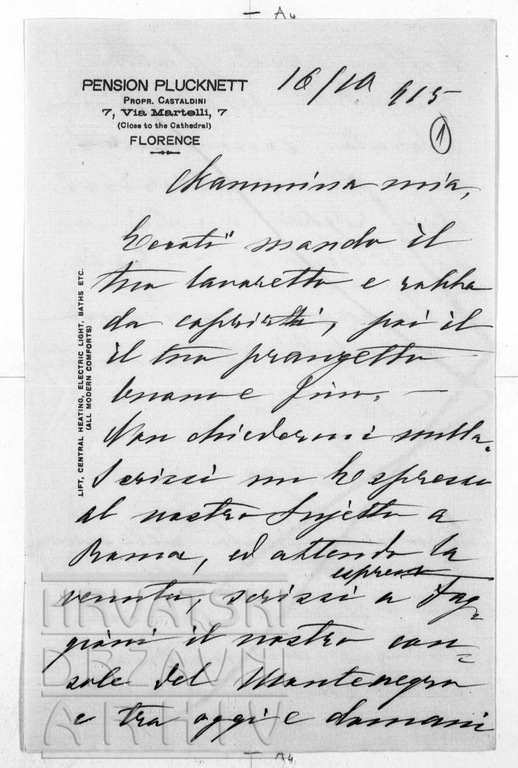 A4
PENSION PLUCKNETT
PROPR. CASTALDINI
7, Via Martelli, 7
(Close to the Cathedral)
FLORENCE
16/10 915
1
Mammina mia,
Eccoti mando il
tuo lavoretto e robba
da coprirti, poi il
il tuo pranzetto
buono e fino. —
Non chiedermi nulla.
Scrissi un Espresso
al nostro a
Roma, ed attendo la
espresso
venuta, scrissi a Fag-
gioni il nostro con-
sole del Montenegro
e tra oggi e domani
LIFT, CENTRAL HEATING, ELECTRIC LIGHT, BATHS ETC.
(ALL MODERN COMFORTS)
HRVATSKI
DRŽAVNI
ARHIV
A4